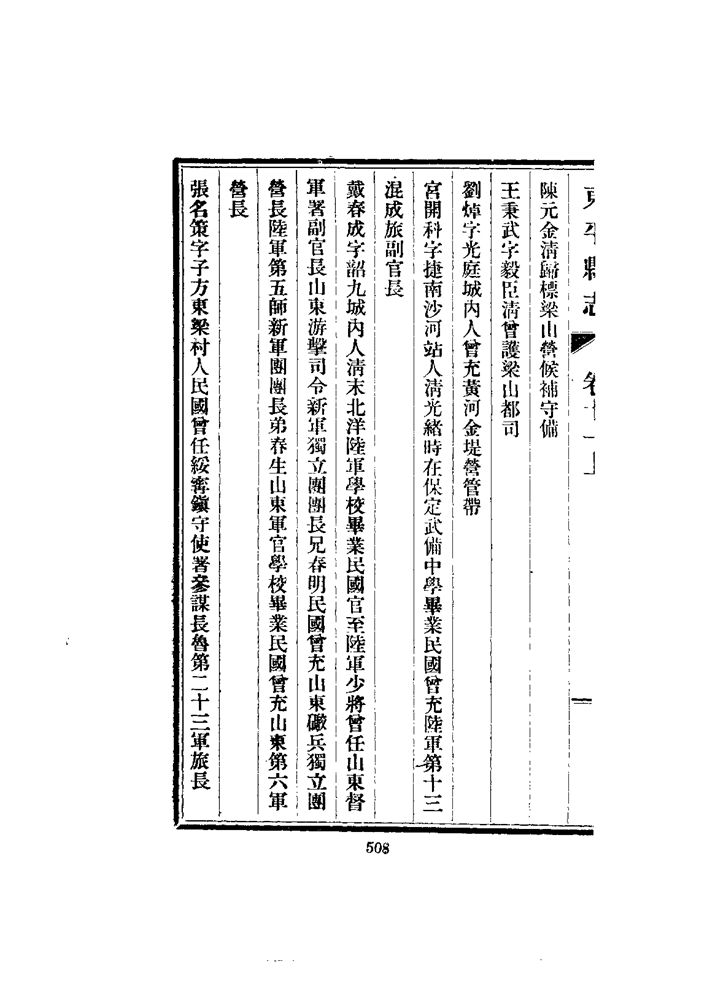 東平縣志 卷十一上
陳元金清歸標梁山營候補守備
王秉武字毅臣清曾護梁山都司
劉焯字光庭城內人曾充黃河金堤營管帶
宮開科字捷南沙河站人清光緒時在保定武備中學畢業民國曾充陸軍第十三
混成旅副官長
戴春成字韶九城內人清末北洋陸軍學校畢業民國官至陸軍少將曾任山東督
軍署副官長山東游擊司令新軍獨立團團長兄春明民國曾充山東礮兵獨立團
營長陸軍第五師新軍團團長弟春生山東軍官學校畢業民國曾充山東第六軍
營長
張名策字子方東梁村人民國曾任綏寗鎭守使署參謀長魯第二十三軍旅長
508